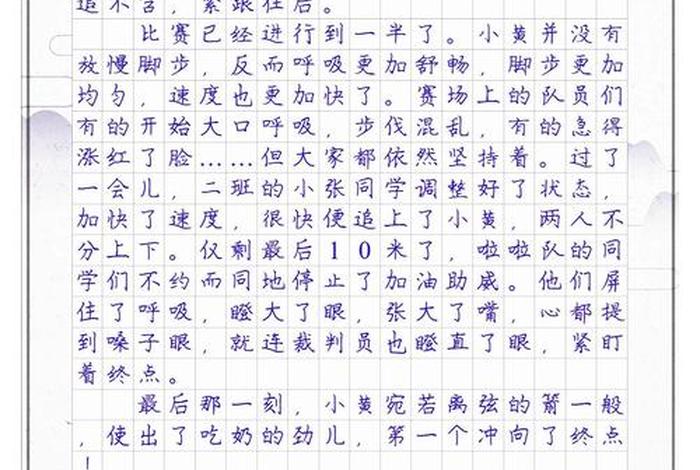 追不舍，紧跟在后。
比赛已经进行到一半了。小黄并没有
放慢脚步，反而呼吸更加舒畅，脚步更加
均匀，速度也更加快了。赛场上的队员们
有的开始大口呼吸，步伐混乱，有的急得
涨红了脸……但大家都依然坚持着。过了
一会儿，二班的小张同学调整好了状态，
加快了速度，很快便追上了小黄，两人不
分上下。仅剩最后10米了，啦啦队的同
学们不约而同地停止了加油助威。他们屏
住了呼吸，瞪大了眼，张大了嘴，心都提
到嗓子眼，就连裁判员也瞪直了眼，紧盯
着终点。
最后那一刻，小黄宛若离弦的箭一般
，使出了吃奶的劲儿，第一个冲向了终点
！